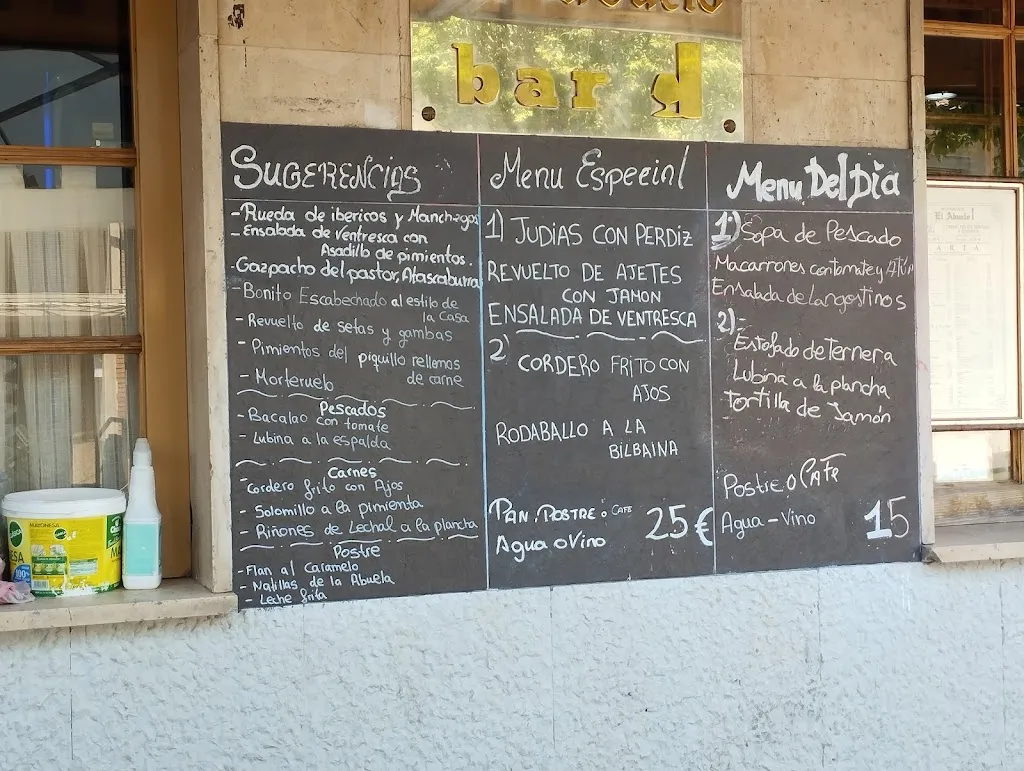 bar
SUGERENCIAS
-Rueda de ibericos y Manchegos
- Ensalada de Ventresca con
Asadillo de pimientos.
-Gazpacho del pastor, Atascaburra
- Bonito Escabechado al estilo de
la Casa
- Revuelto de setas y gambas
- Pimientos del piquillo rellenos
de carne
- Morteruelo
Pescados
- Bacalao con tomate
- Lubina a la espalda
Carnes
- Cordero frito con Ajos
- Solomillo a la pimienta
- Riñones de Lechal a la plancha
Postre
- Flan al Caramelo
- Natillas de la Abuela
- Leche frita
Menu Especial
1) JUDIAS CON PERDIZ
REVUELTO DE AJETES
CON JAMON
ENSALADA DE VENTRESCA
2) CORDERO FRITO CON
AJOS
RODABALLO A LA
BILBAINA
PAN, POSTRE o CAFE
Agua o Vino
25 €
Menu Del Dia
1) Sopa de Pescado
Macarrones con tomate y Atún
Ensalada de Langostinos
2)-
Estofado de Ternera
Lubina a la plancha
Tortilla de Jamón
Postre o CAFE
Agua - Vino
15
El Abuelo
CARTA
MAYONESA